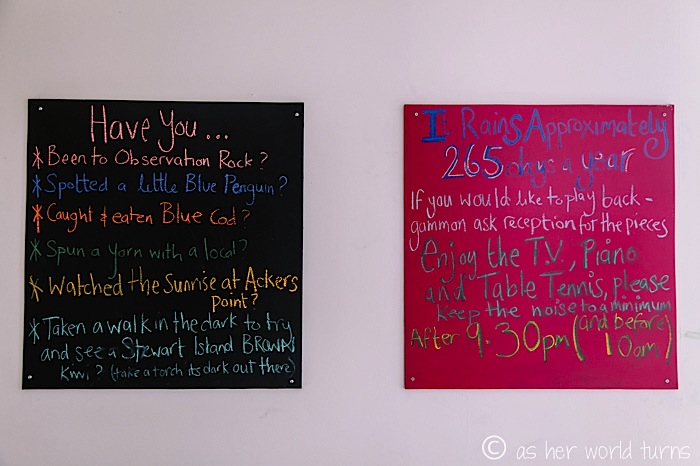 Have You ...
* Been to Observation Rock?
* Spotted a little Blue Penguin?
* Caught & eaten Blue Cod?
* Spun a yorn with a local?
* Watched the Sunrise at Ackers
Point?
* Taken a walk in the dark to try
and see a Stewart Island BROWN
Kiwi? (take a torch its dark out there)
It Rains Approximately
265 days a year
If you would like to play back-
gammon ask reception for the pieces
Enjoy the T.V., Piano
and Table Tennis, please
Keep the noise to a minimum
After 9.30pm (and before
10am)
© as her world turns